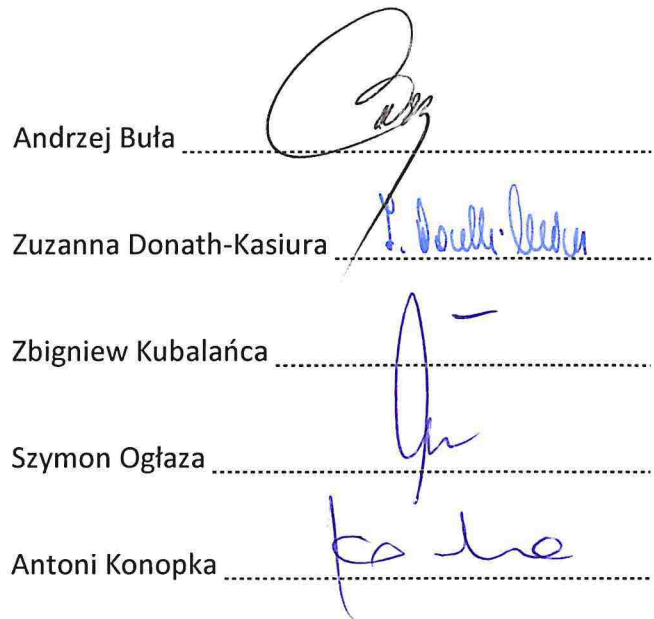 Andrzej Buła
Zuzanna Donath-Kasiura
Zbigniew Kubalańca
Szymon Ogłaza
Antoni Konopka